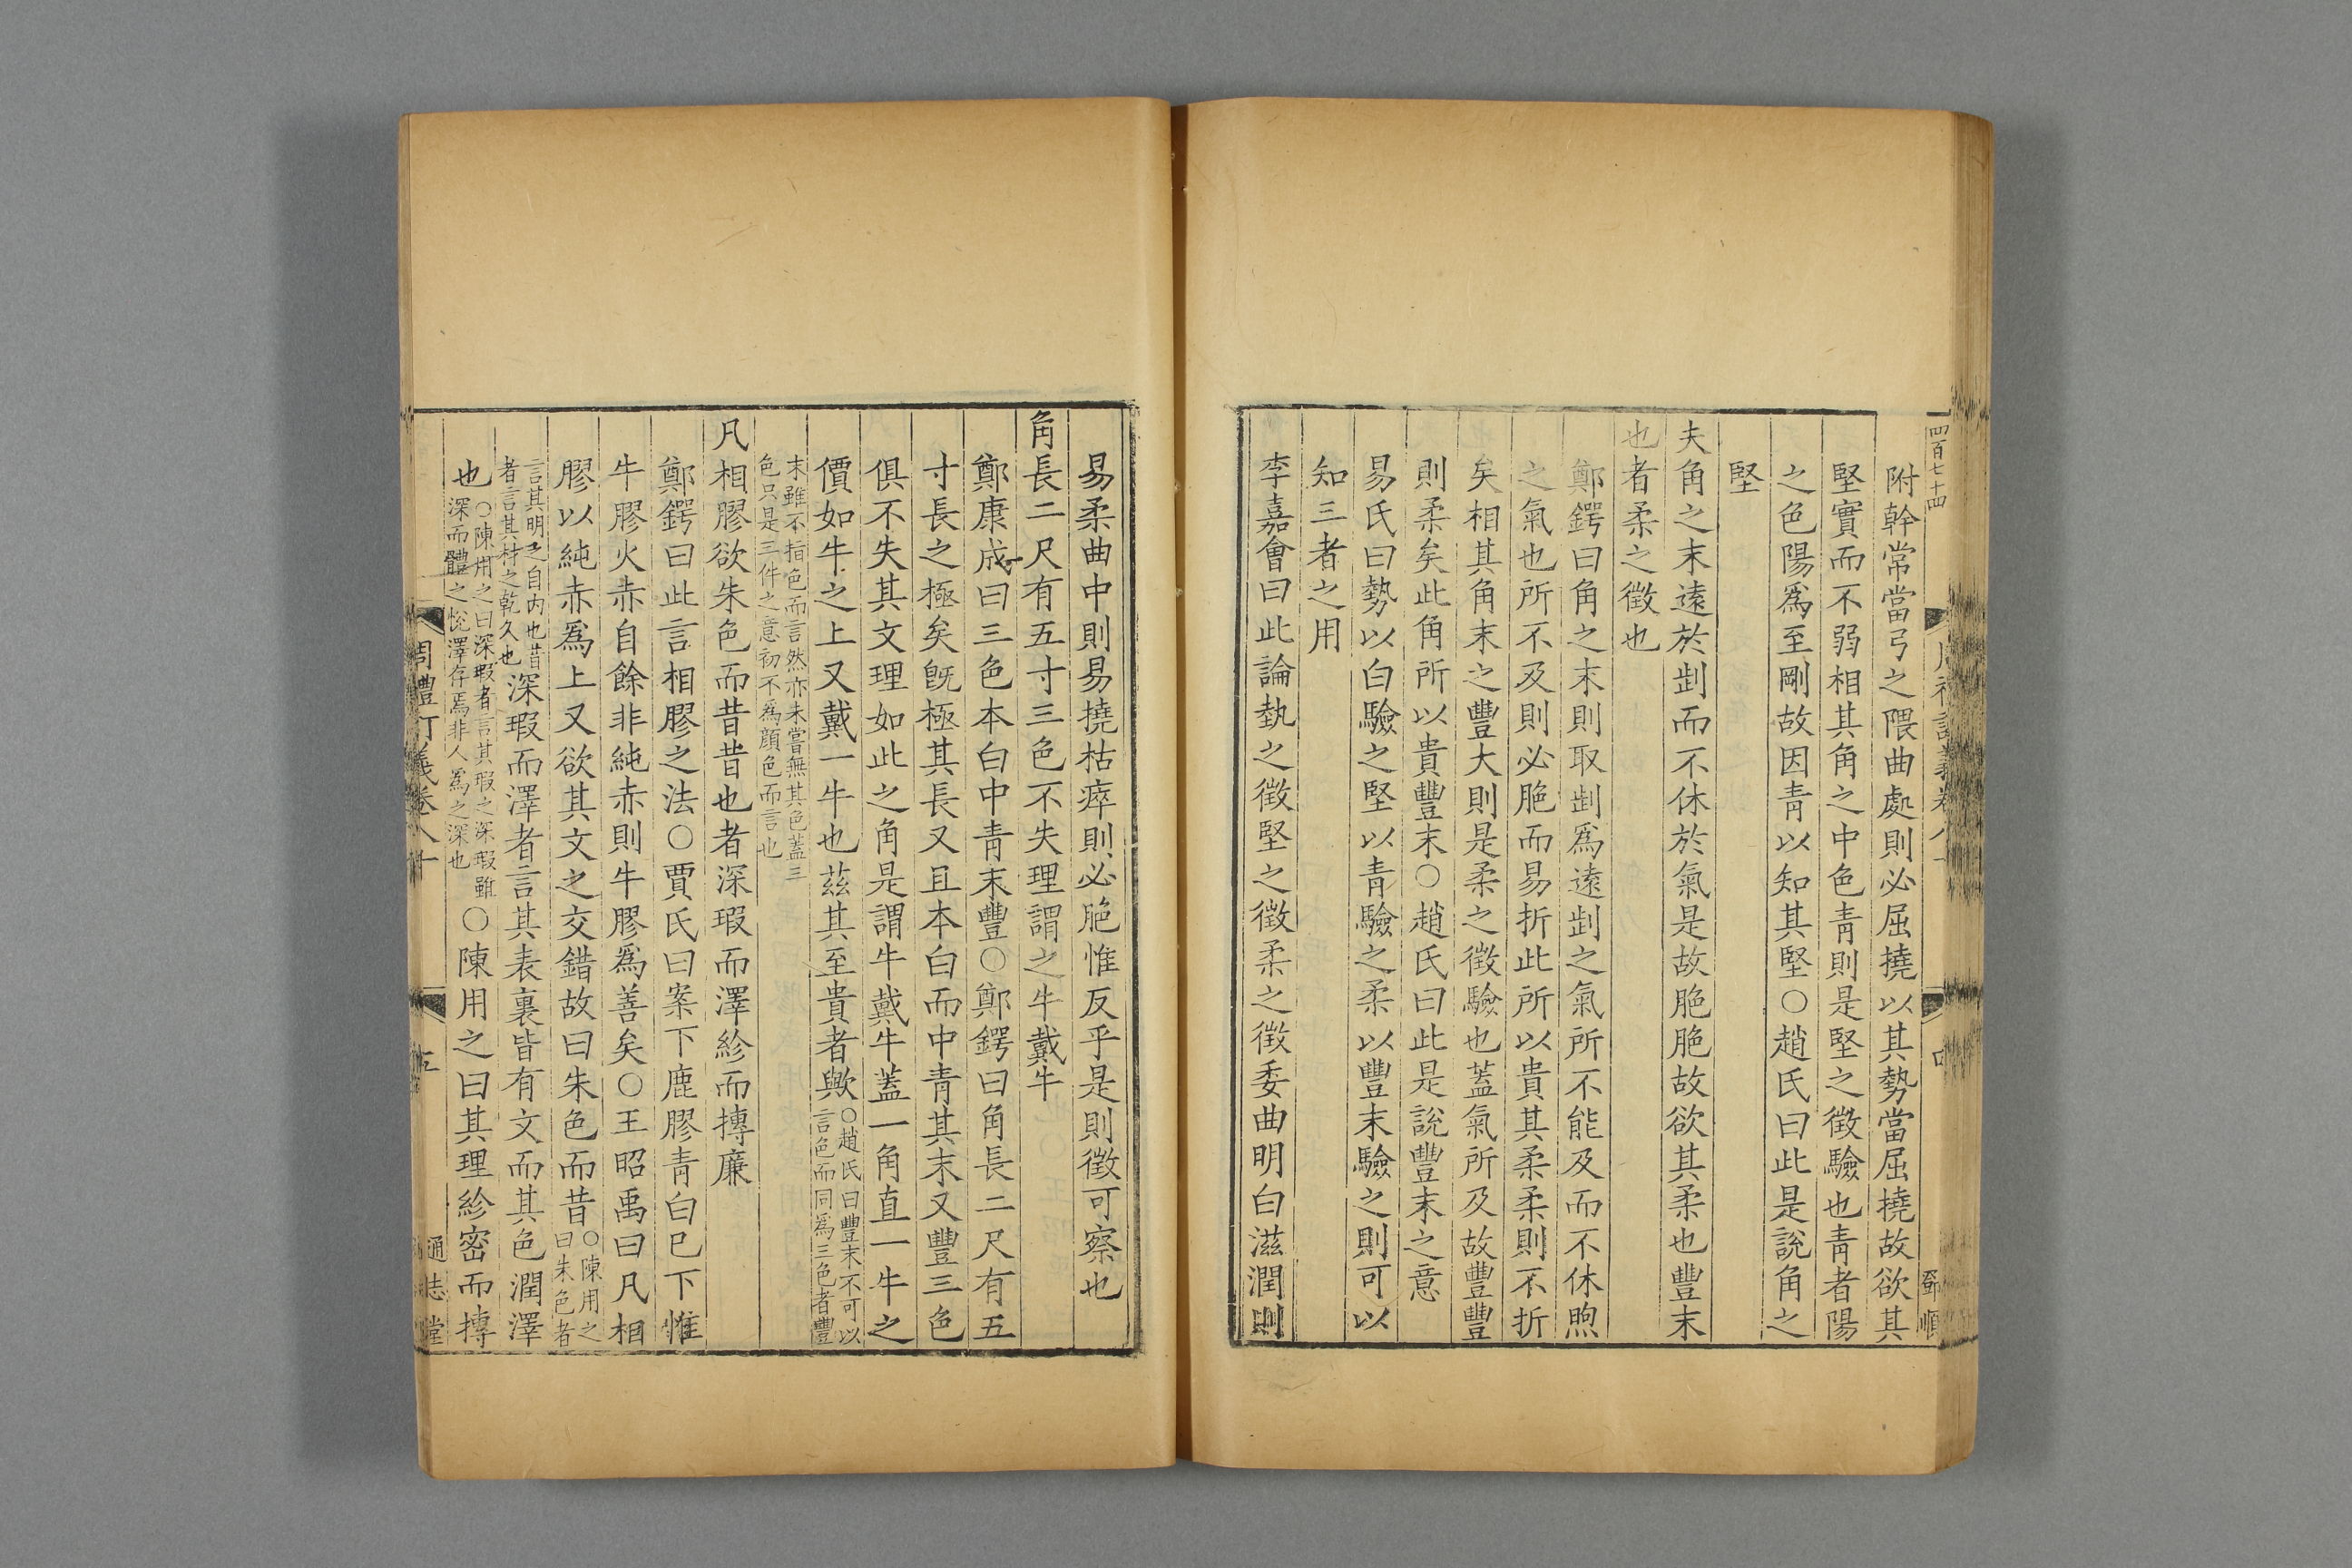 四百七十四
附幹常當弓之隈曲處則必屈撓以其勢當屈撓故欲其
堅實而不弱相其角之中色靑則是堅之徵驗也靑者陽
之色陽爲至剛故因靑以知其堅○趙氏曰此是說角之
堅
夫角之末遠於𠜶而不休於氣是故脃脃故欲其柔也豐末
也者柔之徵也
鄭鍔曰角之末則取𠜶爲遠𠜶之氣所不能及而不休煦
之氣也所不及則必脃而易折此所以貴其柔柔則不折
矣相其角末之豐大則是柔之徵驗也蓋氣所及故豐豐
則柔矣此角所以貴豐末○趙氏曰此是說豐末之意
易氏曰勢以白驗之堅以靑驗之柔以豐末驗之則可以
知三者之用
李嘉會曰此論埶之徵堅之徵柔之徵委曲明白滋潤則
鄧順
易柔曲中則易撓枯瘁則必脃惟反乎是則徵可察也
角長二尺有五寸三色不失理謂之牛戴牛
鄭康成曰三色本白中靑末豐○鄭鍔曰角長二尺有五
寸長之極矣旣極其長又且本白而中靑其末又豐三色
俱不失其文理如此之角是謂牛戴牛蓋一角直一牛之
價如牛之上又戴一牛也茲其至貴者歟○趙氏曰豐末不可以
言色而同爲三色者豐
末雖不指色而言然亦未嘗無其色蓋三
色只是三件之意初不爲顔色而言也
凡相膠欲朱色而昔昔也者深瑕而澤紾而摶廉
鄭鍔曰此言相膠之法○賈氏曰案下鹿膠靑白已下惟
牛膠火赤自餘非純赤則牛膠爲善矣○王昭禹曰凡相
膠以純赤爲上又欲其文之交錯故曰朱色而昔○陳用之
曰朱色者
言其明之自内也昔
者言其材之乾久也深瑕而澤者言其表裏皆有文而其色潤澤
也○陳用之曰深瑕者言其瑕之深瑕雖
深而體之悅澤存焉非人爲之深也○陳用之曰其理紾密而摶
周禮訂義卷八十
五
通志堂